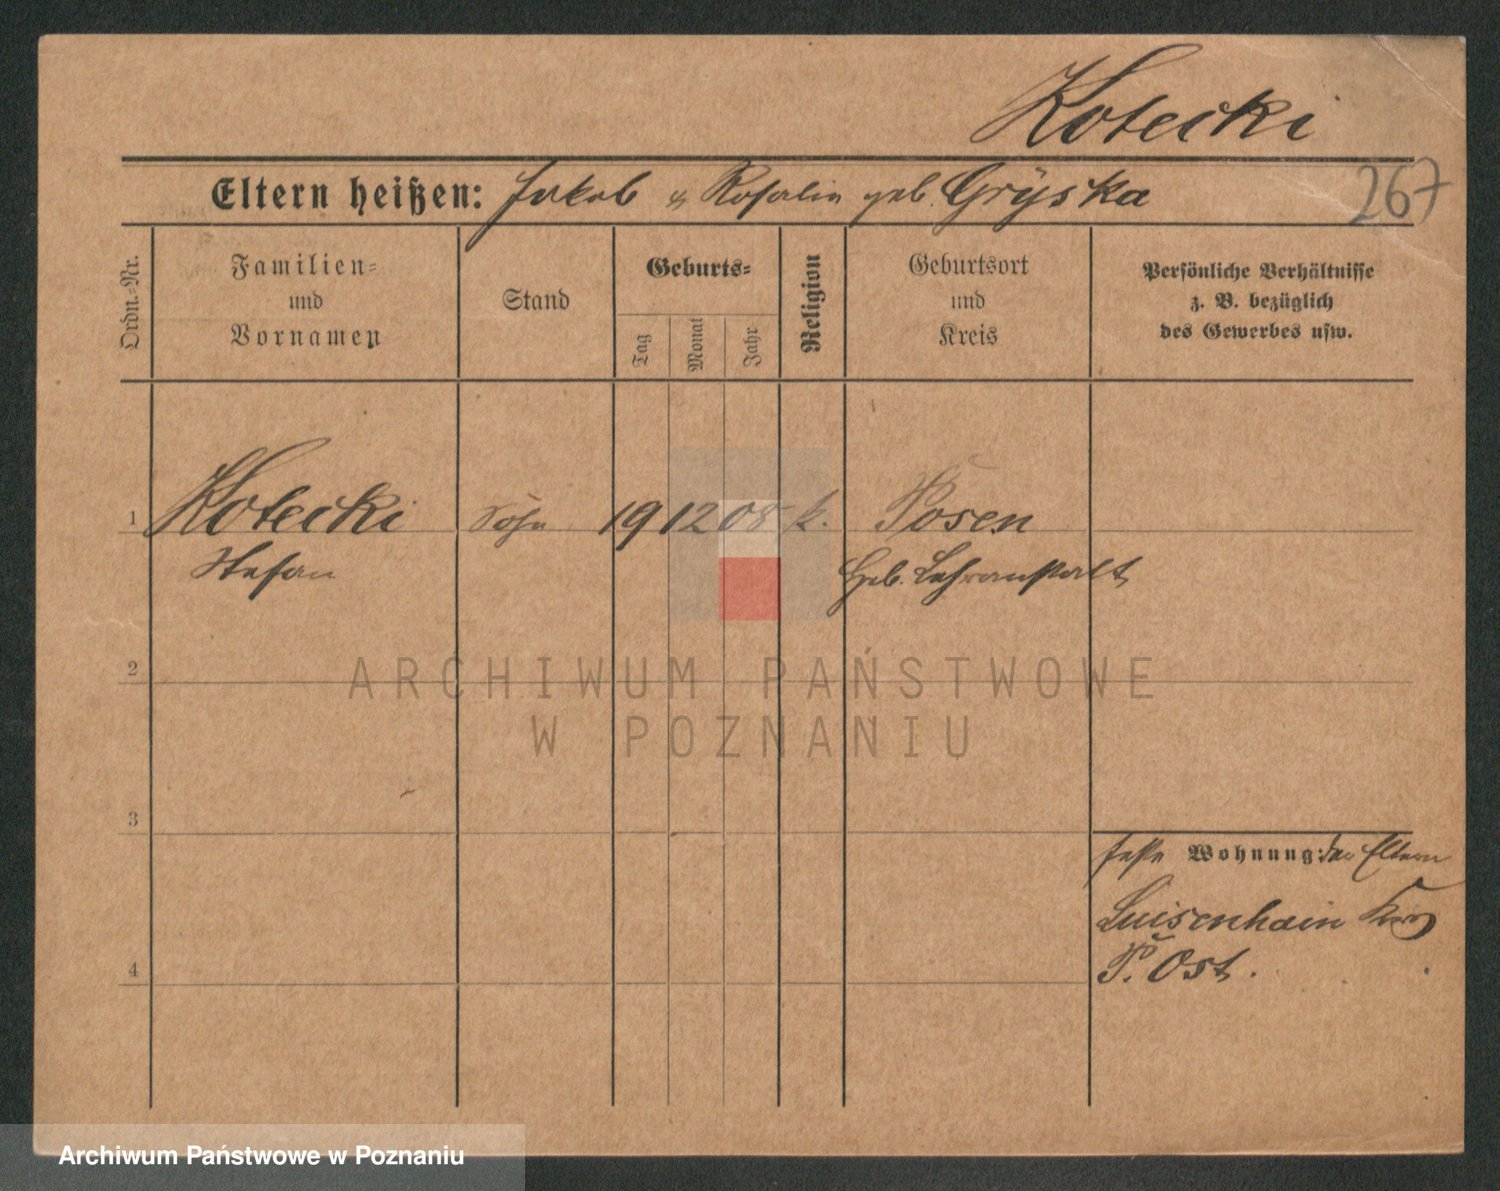 Kotecki
Eltern heißen: Jakob u Rosalie geb. Gryska
267
Ordn.-Nr.
Familien-
und
Vornamen
Stand
Geburts-
Tag
Monat
Jahr
Religion
Geburtsort
und
Kreis
Persönliche Verhältnisse
z. B. bezüglich
des Gewerbes usw.
1 Kotecki Sohn 19 12 08 k. Posen
Stefan Heb. Lehranstalt
ARCHIWUM PAŃSTWOWE
W POZNANIU
2
3
feste Wohnung: der Eltern
Luisenhain
P. Ost.
4
Archiwum Państwowe w Poznaniu